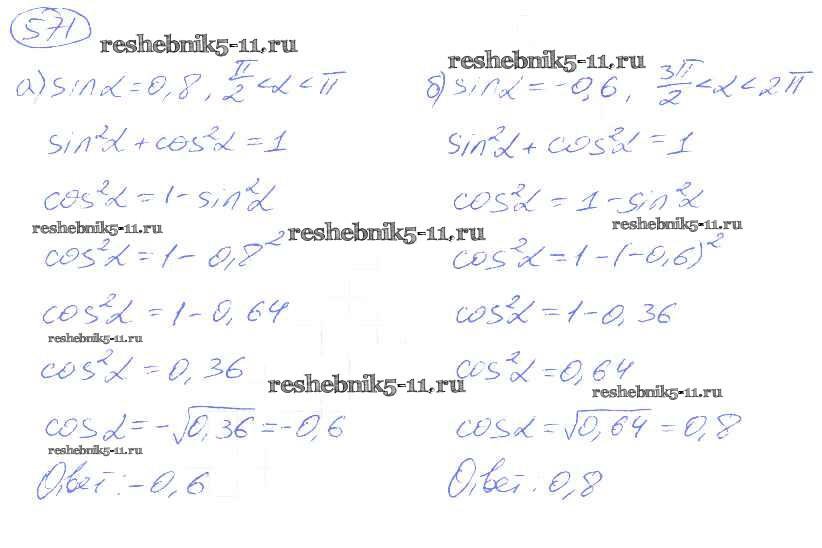 571
reshebnik5-11.ru
а) sinα = 0,8, π/2 < α < π
sin²α + cos²α = 1
cos²α = 1 - sin²α
reshebnik5-11.ru
cos²α = 1 - 0,8²
cos²α = 1 - 0,64
reshebnik5-11.ru
cos²α = 0,36
cosα = -√0,36 = -0,6
reshebnik5-11.ru
Ответ: -0,6
reshebnik5-11.ru
reshebnik5-11.ru
reshebnik5-11.ru
б) sinα = -0,6, 3π/2 < α < 2π
sin²α + cos²α = 1
cos²α = 1 - sin²α
reshebnik5-11.ru
cos²α = 1 - (-0,6)²
cos²α = 1 - 0,36
cos²α = 0,64
reshebnik5-11.ru
cosα = √0,64 = 0,8
Ответ: 0,8